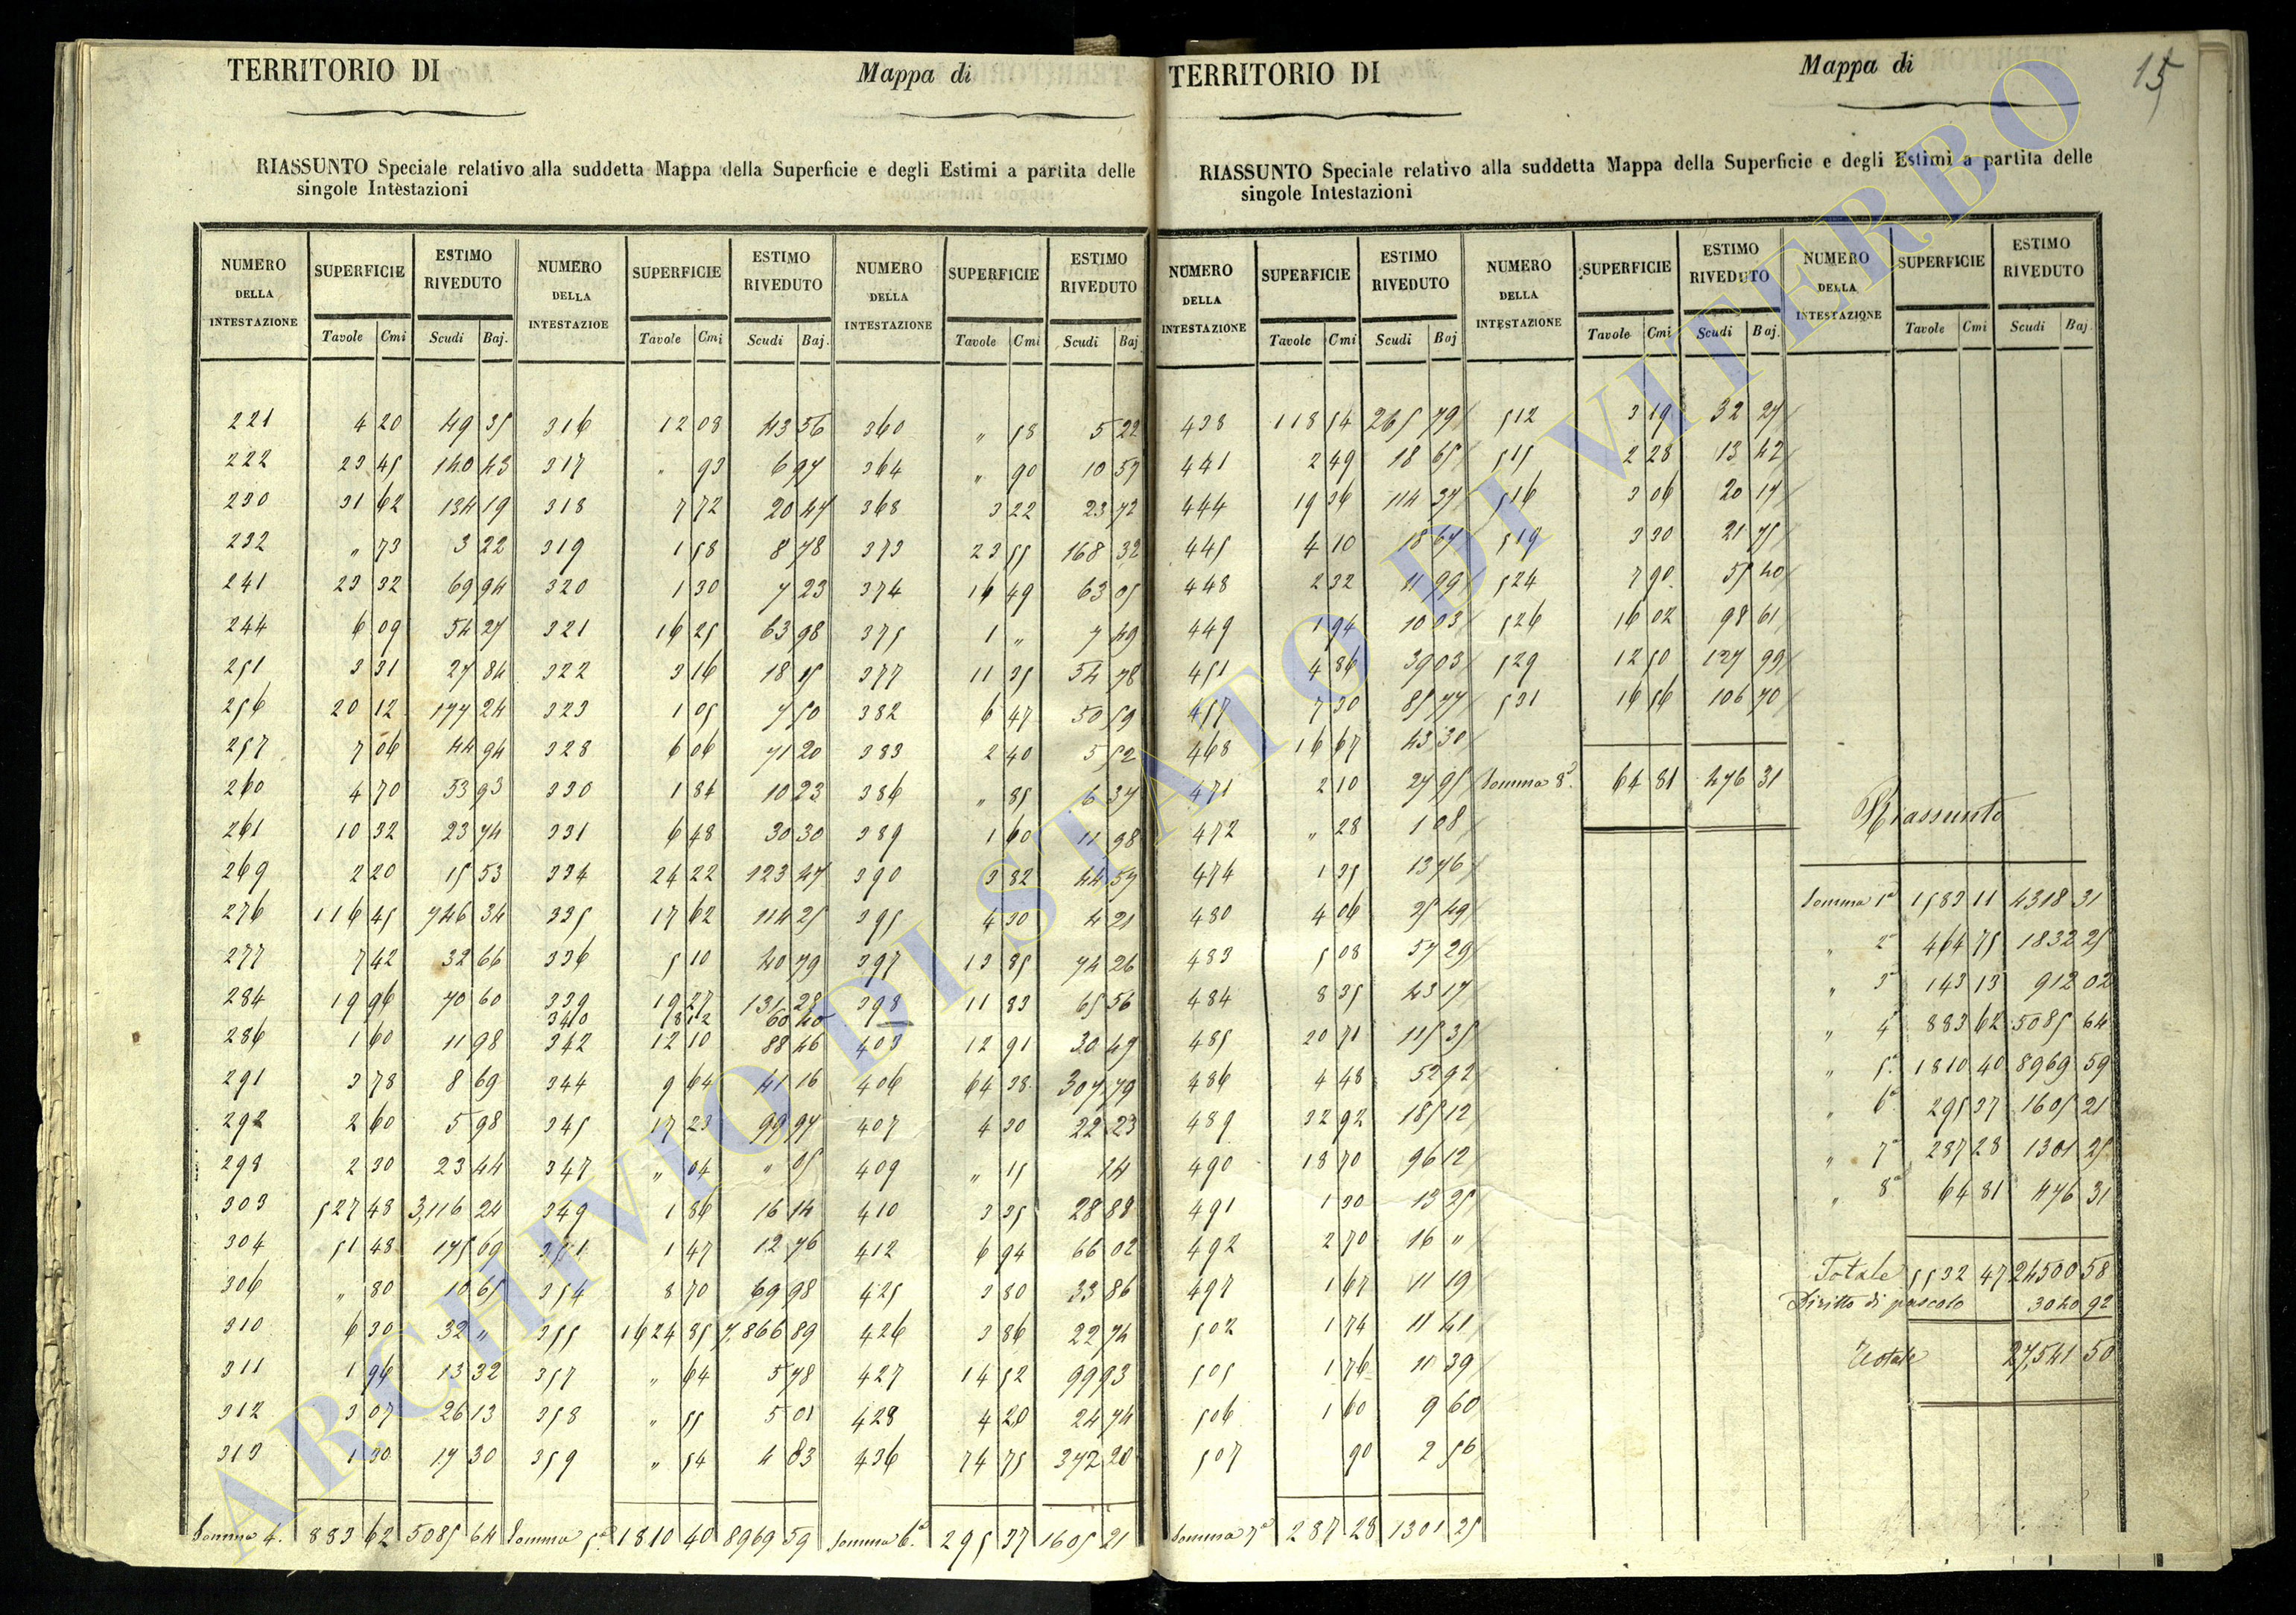 15
TERRITORIO DI Mappa di
RIASSUNTO Speciale relativo alla suddetta Mappa della Superficie e degli Estimi a partita delle
singole Intestazioni
NUMERO DELLA INTESTAZIONE SUPERFICIE ESTIMO RIVEDUTO NUMERO DELLA INTESTAZIOE SUPERFICIE ESTIMO RIVEDUTO NUMERO DELLA INTESTAZIONE SUPERFICIE ESTIMO RIVEDUTO
Tavole Cmi Scudi Baj. Tavole Cmi Scudi Baj. Tavole Cmi Scudi Baj
221 4 20 49 35 316 12 08 43 56 360 " 58 5 22
222 23 45 140 43 317 " 93 6 97 364 " 90 10 57
230 31 62 134 19 318 7 72 20 47 368 3 22 23 72
232 " 73 3 22 319 1 58 8 78 373 23 55 168 32
241 23 32 69 94 320 1 30 7 23 374 16 49 63 05
244 6 09 54 27 321 16 25 63 98 375 1 " 7 49
251 3 31 27 84 322 3 16 18 15 377 11 35 54 78
256 20 12 177 24 323 1 05 7 50 382 6 47 50 59
257 7 06 44 94 328 6 06 71 20 383 2 40 5 52
260 4 70 53 93 330 1 84 10 23 386 " 85 6 37
261 10 32 23 74 331 6 48 30 30 389 1 60 11 98
269 2 20 15 53 334 24 22 123 47 390 3 82 44 57
276 116 45 746 34 335 17 62 114 25 395 4 30 4 21
277 7 42 32 66 336 5 10 40 79 397 13 85 74 26
284 19 96 70 60 339 19 27 131 28 398 11 83 65 56
340 18 12 60 40
286 1 60 11 98 342 12 10 88 46 403 12 91 30 49
291 3 78 8 69 344 9 64 41 16 406 64 38 307 79
292 2 60 5 98 345 17 23 99 97 407 4 30 22 23
298 2 30 23 44 347 " 04 " 05 409 " 15 24
303 527 48 3,116 24 349 1 86 16 14 410 3 35 28 88
304 51 48 175 69 351 1 47 12 76 412 6 94 66 02
306 " 80 10 65 354 8 70 69 98 425 3 80 33 86
310 6 30 32 " 355 1624 35 7,866 89 426 3 86 22 74
311 1 94 13 32 357 " 64 5 78 427 14 52 99 93
312 3 07 26 13 358 " 55 5 01 428 4 20 24 74
313 1 30 17 30 359 " 54 4 83 436 74 75 372 20
Somma 4. 883 62 5085 64 Somma 5a. 1810 40 8969 59 Somma 6a. 295 37 1605 21
TERRITORIO DI Mappa di
RIASSUNTO Speciale relativo alla suddetta Mappa della Superficie e degli Estimi a partita delle
singole Intestazioni
NUMERO DELLA INTESTAZIONE SUPERFICIE ESTIMO RIVEDUTO NUMERO DELLA INTESTAZIONE SUPERFICIE ESTIMO RIVEDUTO NUMERO DELLA INTESTAZIONE SUPERFICIE ESTIMO RIVEDUTO
Tavole Cmi Scudi Baj Tavole Cmi Scudi Baj. Tavole Cmi Scudi Baj.
438 118 54 265 79 512 3 19 32 27
441 2 49 18 65 515 2 28 13 42
444 19 36 114 37 516 3 06 20 17
445 4 10 18 67 519 3 30 21 75
448 2 32 11 99 524 7 90 55 40
449 1 94 10 03 526 16 02 98 61
451 4 86 39 03 529 12 50 127 99
457 7 30 85 77 531 16 56 106 70
468 16 67 43 30
471 2 10 27 95 Somma 8a. 64 81 476 31
472 " 28 1 08
474 1 35 13 76
480 4 06 25 49
483 5 08 57 29
484 8 35 43 17
485 20 71 115 35
486 4 48 52 92
489 32 92 185 12
490 18 70 96 12
491 1 30 13 25
492 2 70 16 "
497 1 67 11 19
502 1 74 11 41
505 1 76 11 39
506 1 60 9 60
507 90 2 56
Somma 7a 287 28 1301 25
Riassunto
Somma 1a 1583 11 4318 31
" 2a 464 75 1832 25
" 3a 143 13 912 02
" 4a 883 62 5085 64
" 5a 1810 40 8969 59
" 6a 295 37 1605 21
" 7a 287 28 1301 25
" 8a 64 81 476 31
Totale 5532 47 24500 58
Diritto di pascolo 3040 92
Totale 27,541 50
ARCHIVIO DI STATO DI VITERBO